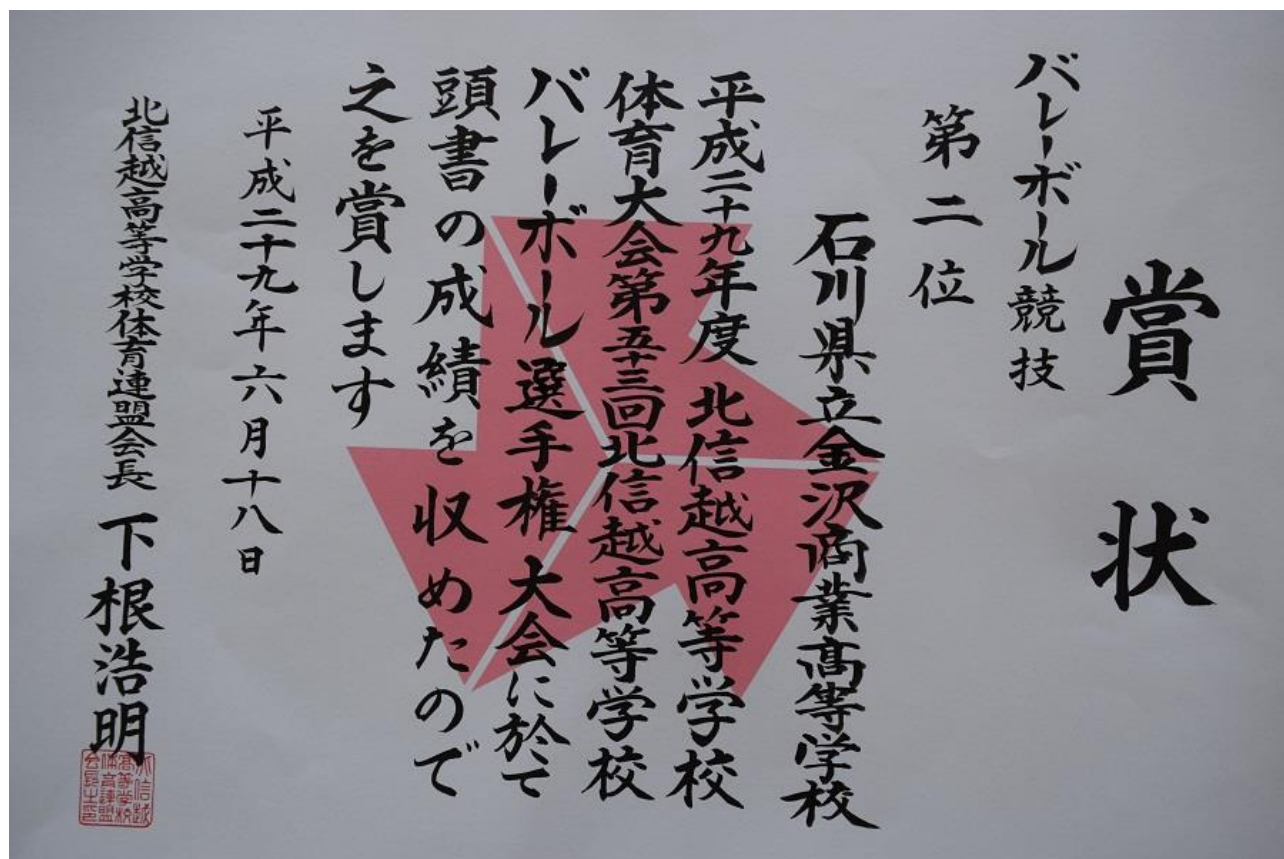 賞状
バレーボール競技
第二位
石川県立金沢商業高等学校
平成二十九年度 北信越高等学校
体育大会第五十三回北信越高等学校
バレーボール選手権大会に於て
頭書の成績を収めたので
之を賞します
平成二十九年六月十八日
北信越高等学校体育連盟会長 下根浩明
北信越
高等学校
体育連盟
会長之印